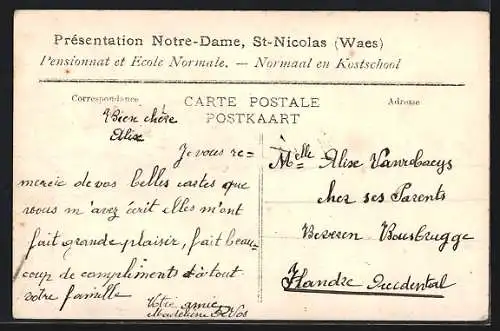 Présentation Notre-Dame, St-Nicolas (Waes)
Pensionnat et Ecole Normale. — Normaal en Kostschool
Correspondance
CARTE POSTALE
POSTKAART
Adresse
Bien chère
Alixe
Je vous re-
mercie de vos belles cartes que
vous m'avez écrit elles m'ont
fait grande plaisir, fait beau-
coup de compliments à tout
votre famille
Votre amie
Madeleine
À
Melle Alixe
chez ses Parents
Beveren
Flandre Occidental